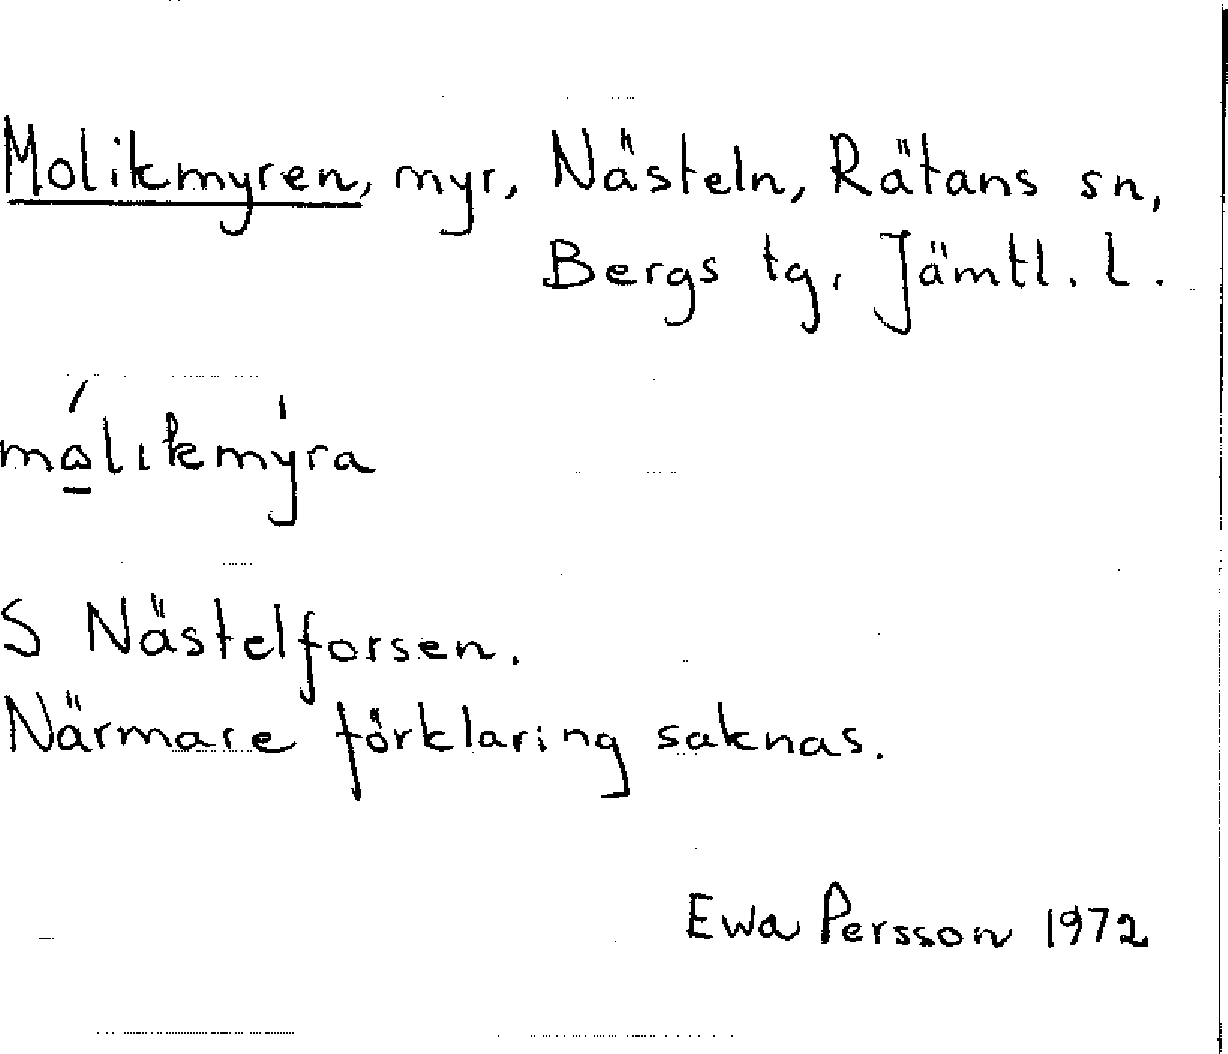 Molikmyren, myr, Nästeln, Rätans sn,
Bergs tg, Jämtl. l.
mó̲likmýra
S Nästelforsen.
Närmare förklaring saknas.
Ewa Persson 1972